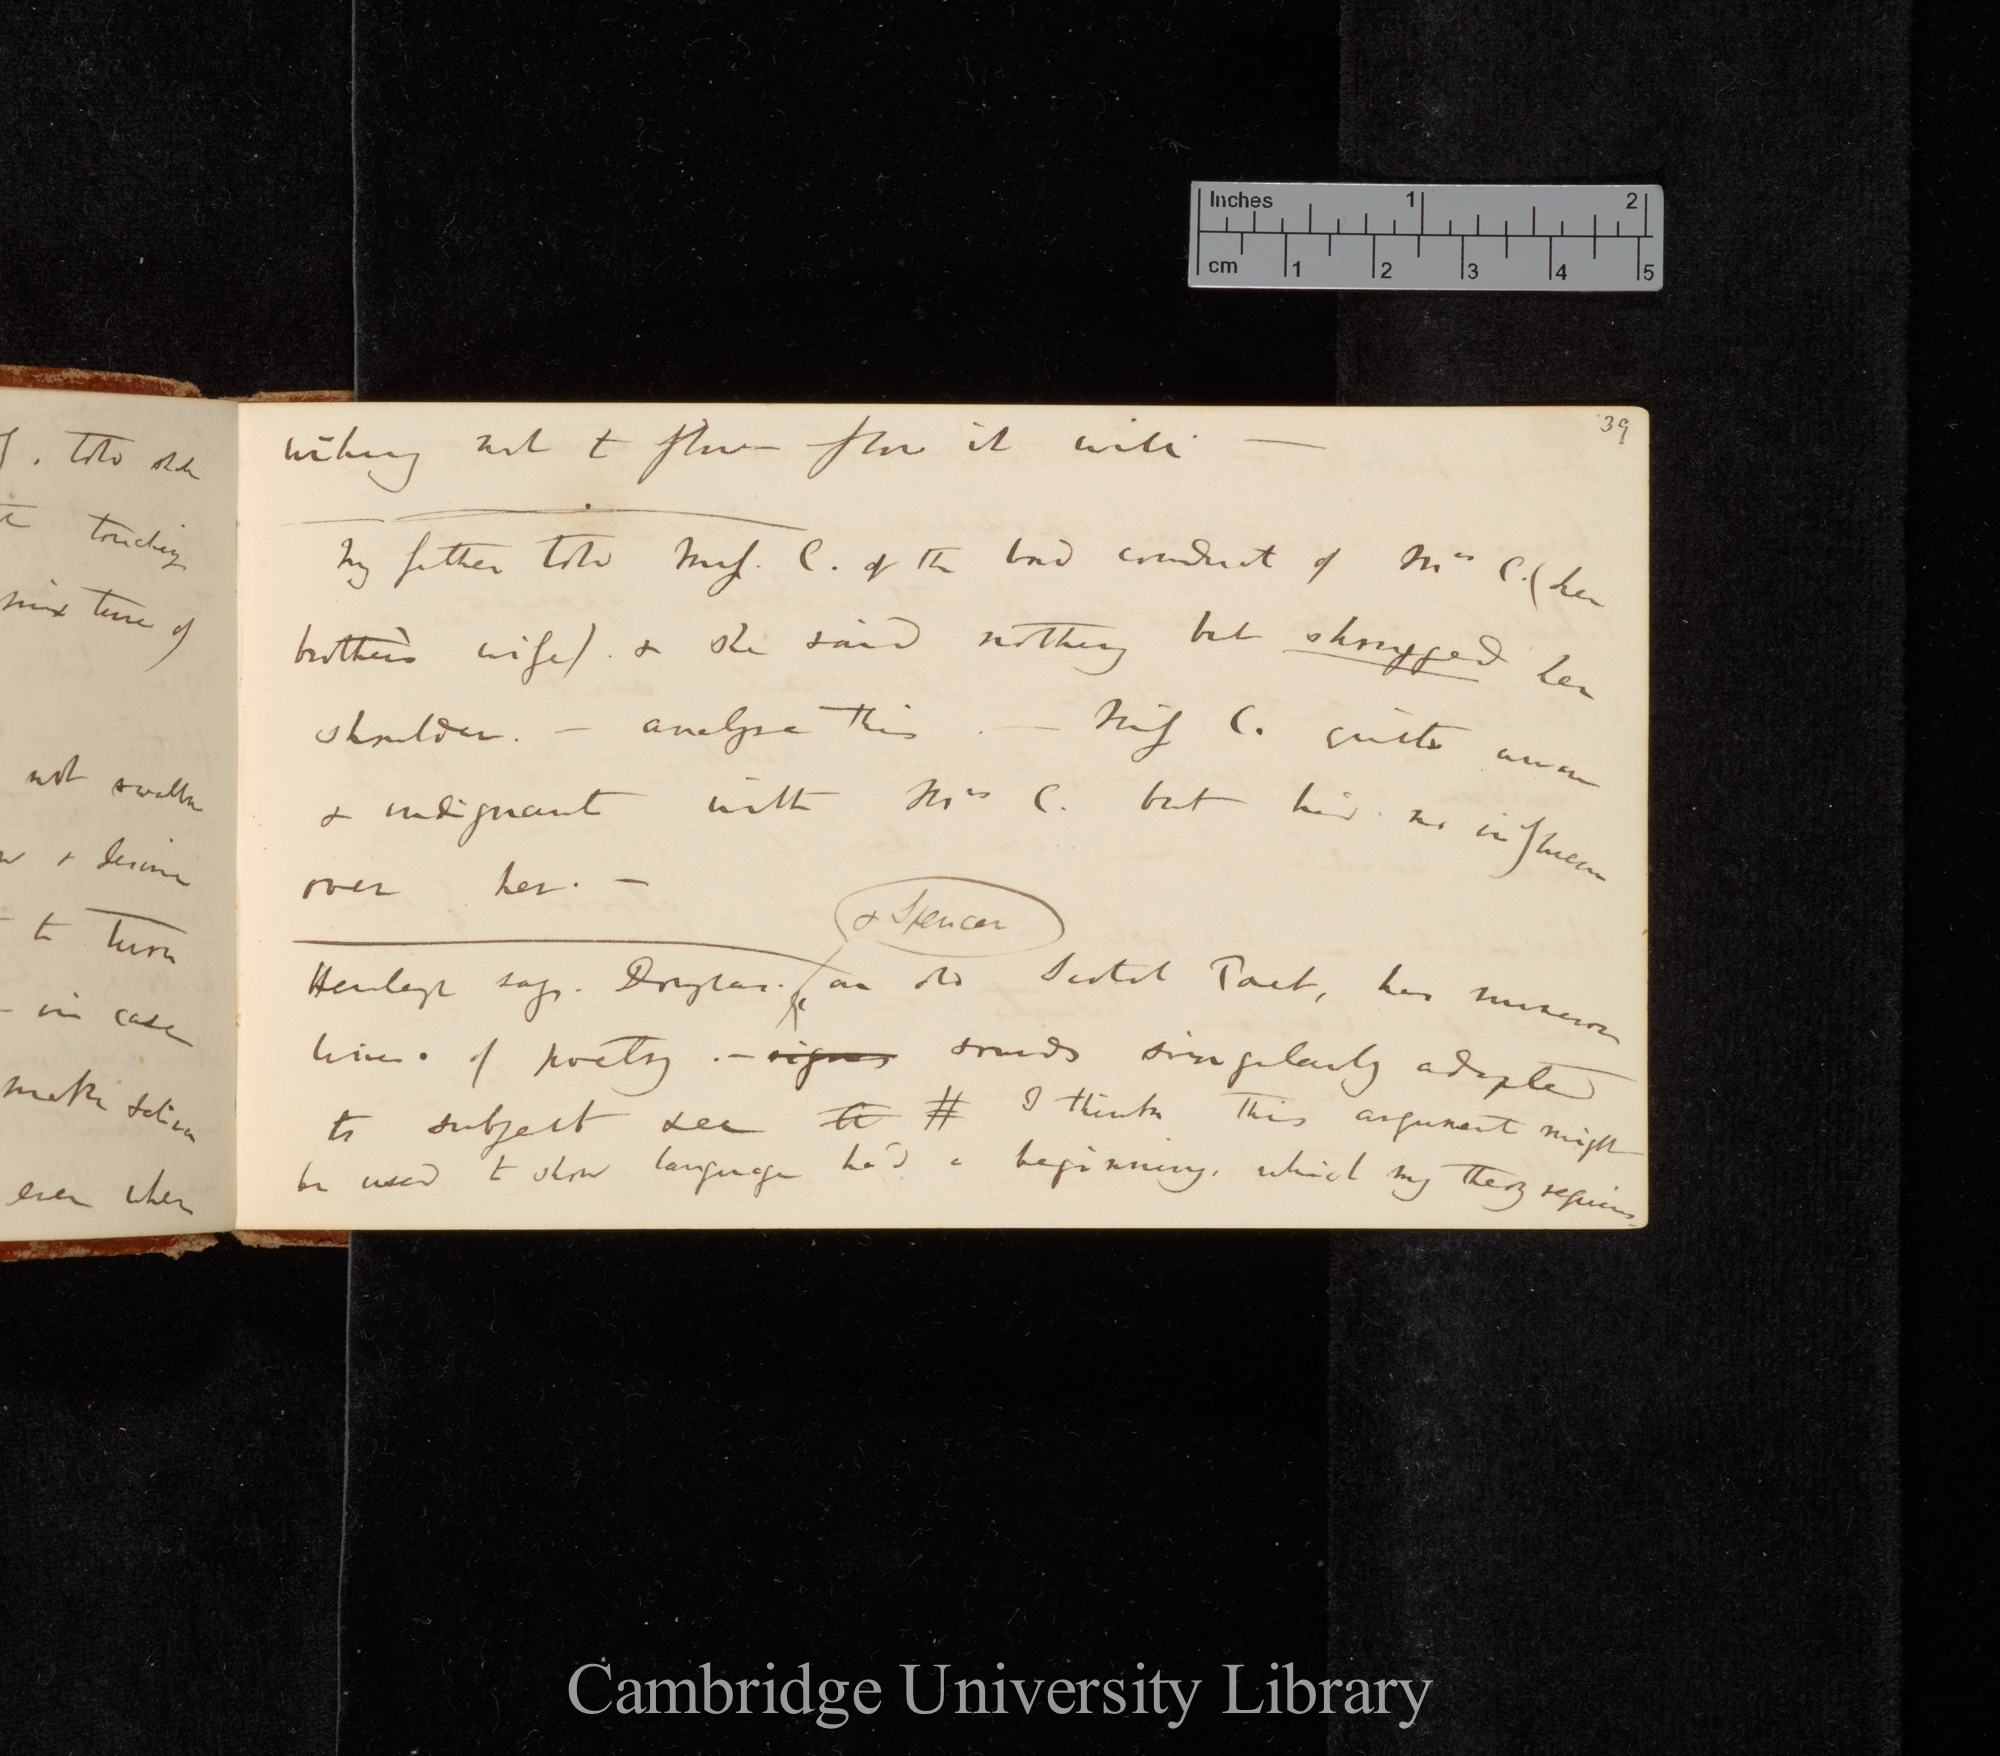 Inches 1 2
cm 1 2 3 4 5
39
. told she
touching
mixture of
not swallow
& desire
to turn
- in case
make saliva
even when
wishing not to flow flow it will —
My father told Miss. C. of the bad conduct of Mrs C. (her
brothers wife). & she said nothing but shrugged her
shoulder. — analyse this. — Miss C. quite aware
& indignant with Mrs C. but had no influence
over her. —
& Spencer
Hensleigh says. Douglas. an old Scotch Poet, has numerous
lines. of poetry. — signs sounds singularly adapted
to subject see the # I think this argument might
be used to show language had a beginning, which my theory requires.
Cambridge University Library